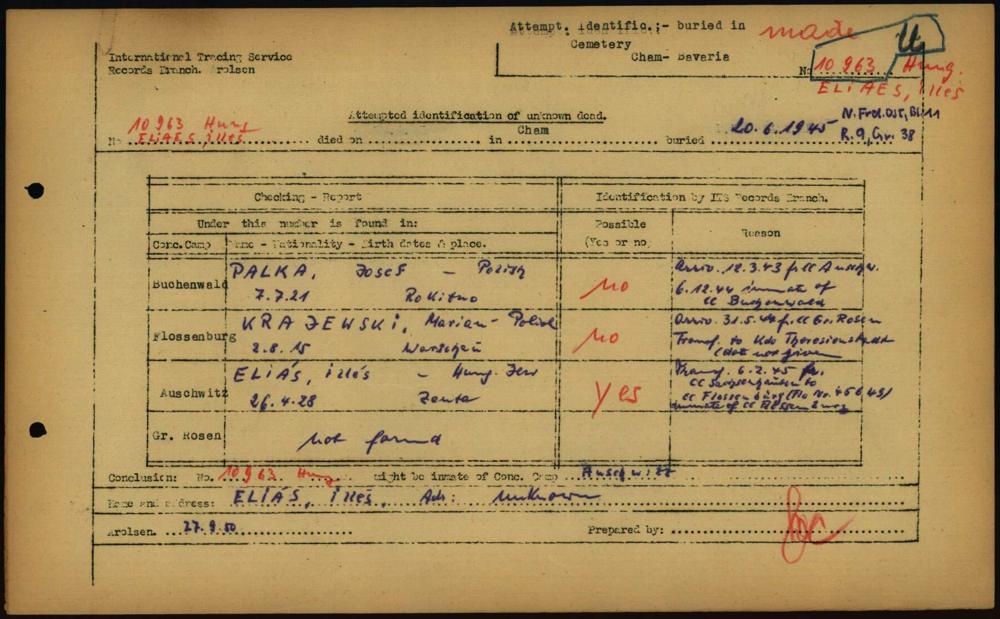 Attempt. Identific.:- buried in
Cemetery
Cham- Bavaria
made
International Tracing Service
Records Branch. Arolsen
No 10 963 Hung.
ELIAES, illés
Attempted identification of unknown dead.
No 10 963 Hung ELIAES, illés died on in Cham buried 20.6.1945
R. 9, Gr. 38
Checking - Report
Identification by ITS Records Branch.
Under this number is found in:
Possible
(Yes or no)
Reason
Conc.Camp
Name - Nationality - Birth dates & place.
Buchenwald
PALKA, Josef - Polish
7.7.21 Rokitno
no
Arriv. 12.3.43 f. CC Auschw.
6.12.44 inmate of
CC Buchenwald
Flossenburg
KRAJEWSKI, Marian - Polish
2.8.15 Warschau
no
Arriv. 31.5.44 f. CC Gr. Rosen
Transf. to Kdo Theresienstadt
(date not given
Auschwitz
ELIAS, illés - Hung. Jew
26.4.28 Zenta
yes
Transf. 6.2.45 fr.
CC Sachsenhausen to
CC Flossenbürg (Flo Nr. 45645)
inmate of CC Flossenbürg
Gr. Rosen
not found
Conclusion: No. 10 963 Hung might be inmate of Conc. Camp Auschwitz
Name and address: ELIÁS, illés, Adr: unknown
Arolsen. 27.9.50 Prepared by: